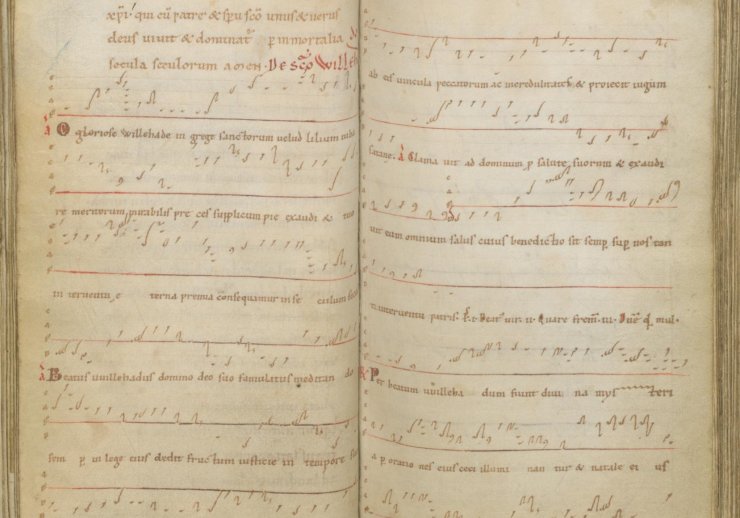 xp̄i. qui cū patre & sp̄u sc̄o unus & uerus
deus uiuit & dominat᷑ p̄ inmortalia
secula seculorum amen. De sc̄o Willeh
O gloriose Willehade in grege sanctorum uelud lilium
re meritorum mirabilis pre ces supplicum pie exaudi & tuo
in teruentu e terna premia consequamur in se culum
Beatus uuillehadus domino deo suo famulatus meditan do
sem p̄ in lege eius dedit fructum iusticie in tempore suo
ab eis uincula peccatorum ac incredulitatis & proiecit iugum
satane. Clama uit ad dominum p̄ salute suorum & exaudi
uit eum omnium salus cuius benedictio sit semp̄ sup̄ nos
interuentu patris. Ps. Beat᷑ uir. Quare frem̄. Dn̄e qd mul.
Per beatum uuilleha dum fiunt diui na mys teri
a p̄ oratio nes eius ceci illumi nan tur & natale ei us